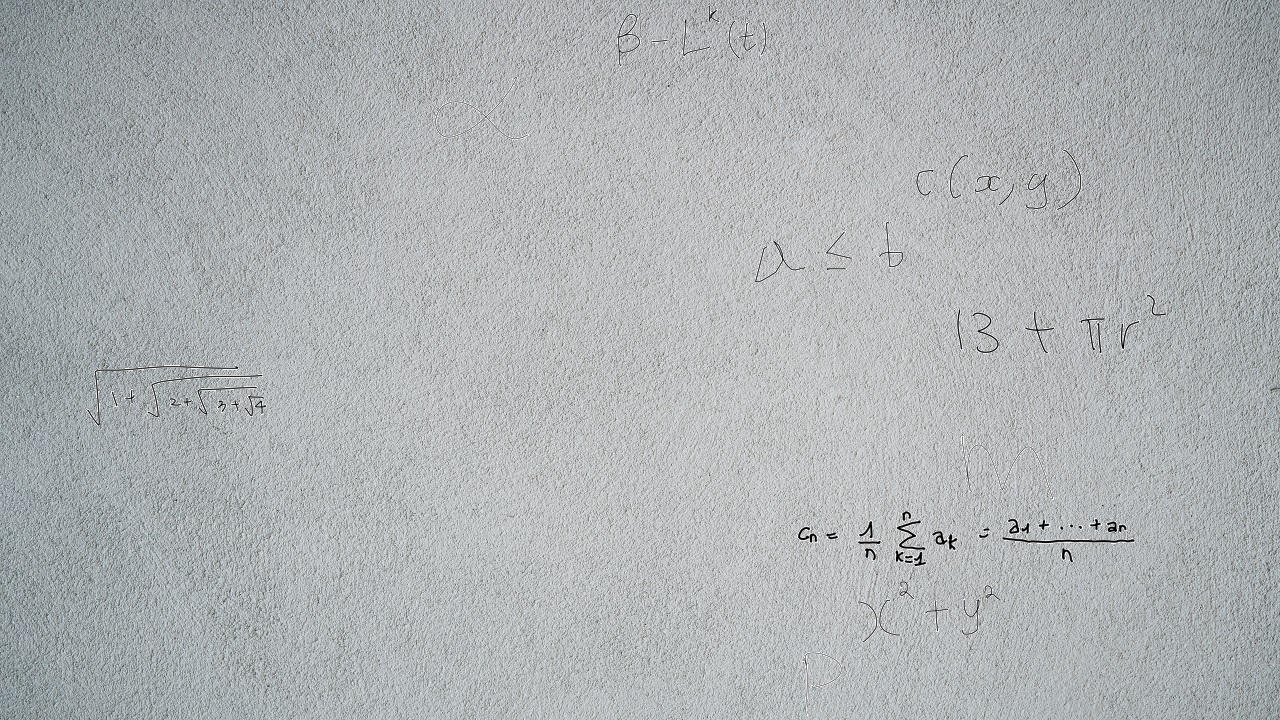 β - L^k (t)
∝
c(x, y)
a ≤ b
13 + πr²
√(1 + √(2 + √(3 + √4)))
m
cₙ = 1/n ∑ₖ₌₁ⁿ aₖ = (a₁ + ... + aₙ)/n
x² + y²
p